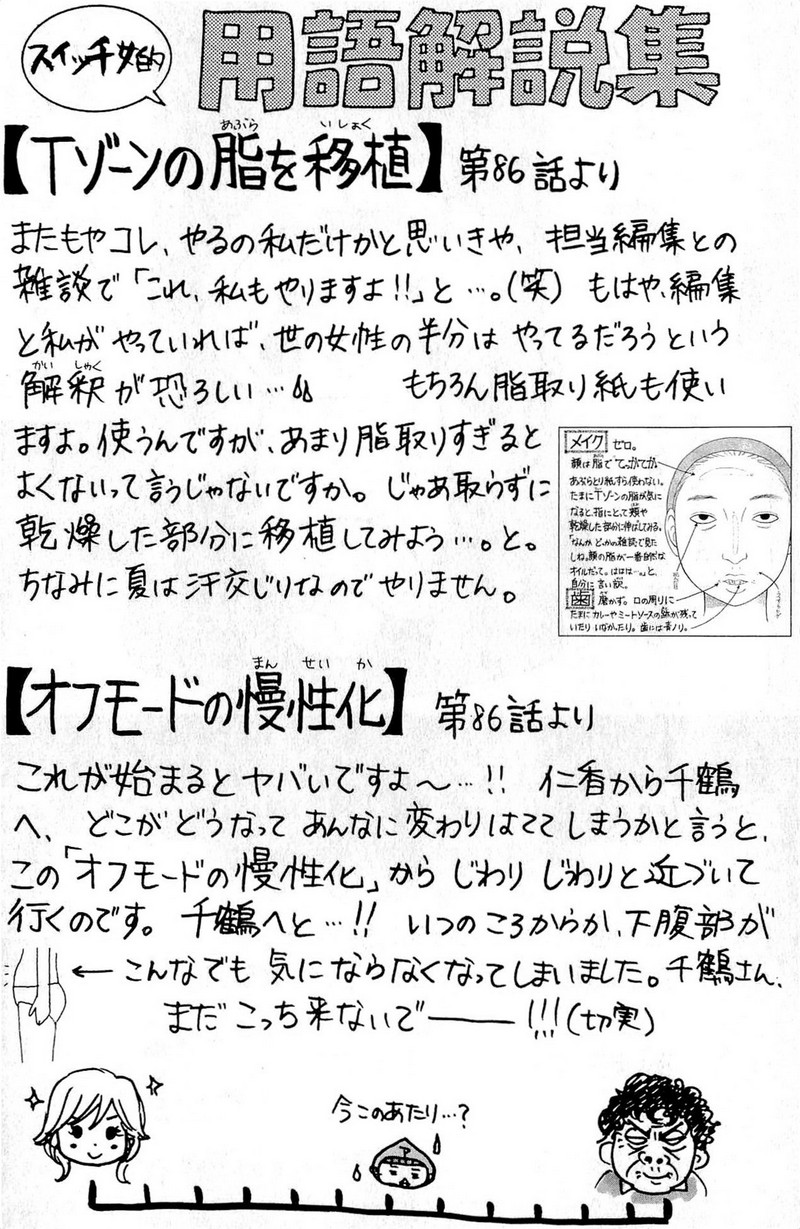 スイッチ女的
用語解説集
【Tゾーンの脂を移植】第86話より
あぶら いしょく
またもやコレ、やるの私だけかと思いきや、担当編集との
雑談で「これ、私もやりますよ!!」と…。(笑) もはや、編集
と私がやっていれば、世の女性の半分はやってるだろうという
かい しゃく
解釈が恐ろしい… もちろん脂取り紙も使い
ますよ。使うんですが、あまり脂取りすぎると
よくないって言うじゃないですか。じゃあ取らずに
乾燥した部分に移植してみよう…。と。
ちなみに夏は汗交じりなのでやりません。
メイク ゼロ。
顔は脂でてっかてか。
あぶらとり紙すら使わない。
たまにTゾーンの脂が気に
なると、指にとって頬や
乾燥した部分に伸ばしてみる。
「なんか どっかの雑誌で見た
しね。顔の脂が一番自然な
オイルだって。ははは…。」と、
自分に言い訳。
歯 磨かず。口の周りに
たまにカレーやミートソースの跡が残って
いたりいなかったり。歯には青ノリ。
まん せい か
【オフモードの慢性化】第86話より
これが始まるとヤバいですよ〜…!! 仁香から千鶴
へ、どこがどうなってあんなに変わりはててしまうかと言うと、
この「オフモードの慢性化」からじわりじわりと近づいて
行くのです。千鶴へと…!! いつのころからか、下腹部が
← こんなでも気にならなくなってしまいました。千鶴さん、
まだこっち来ないでー!!!(切実)
今このあたり…?